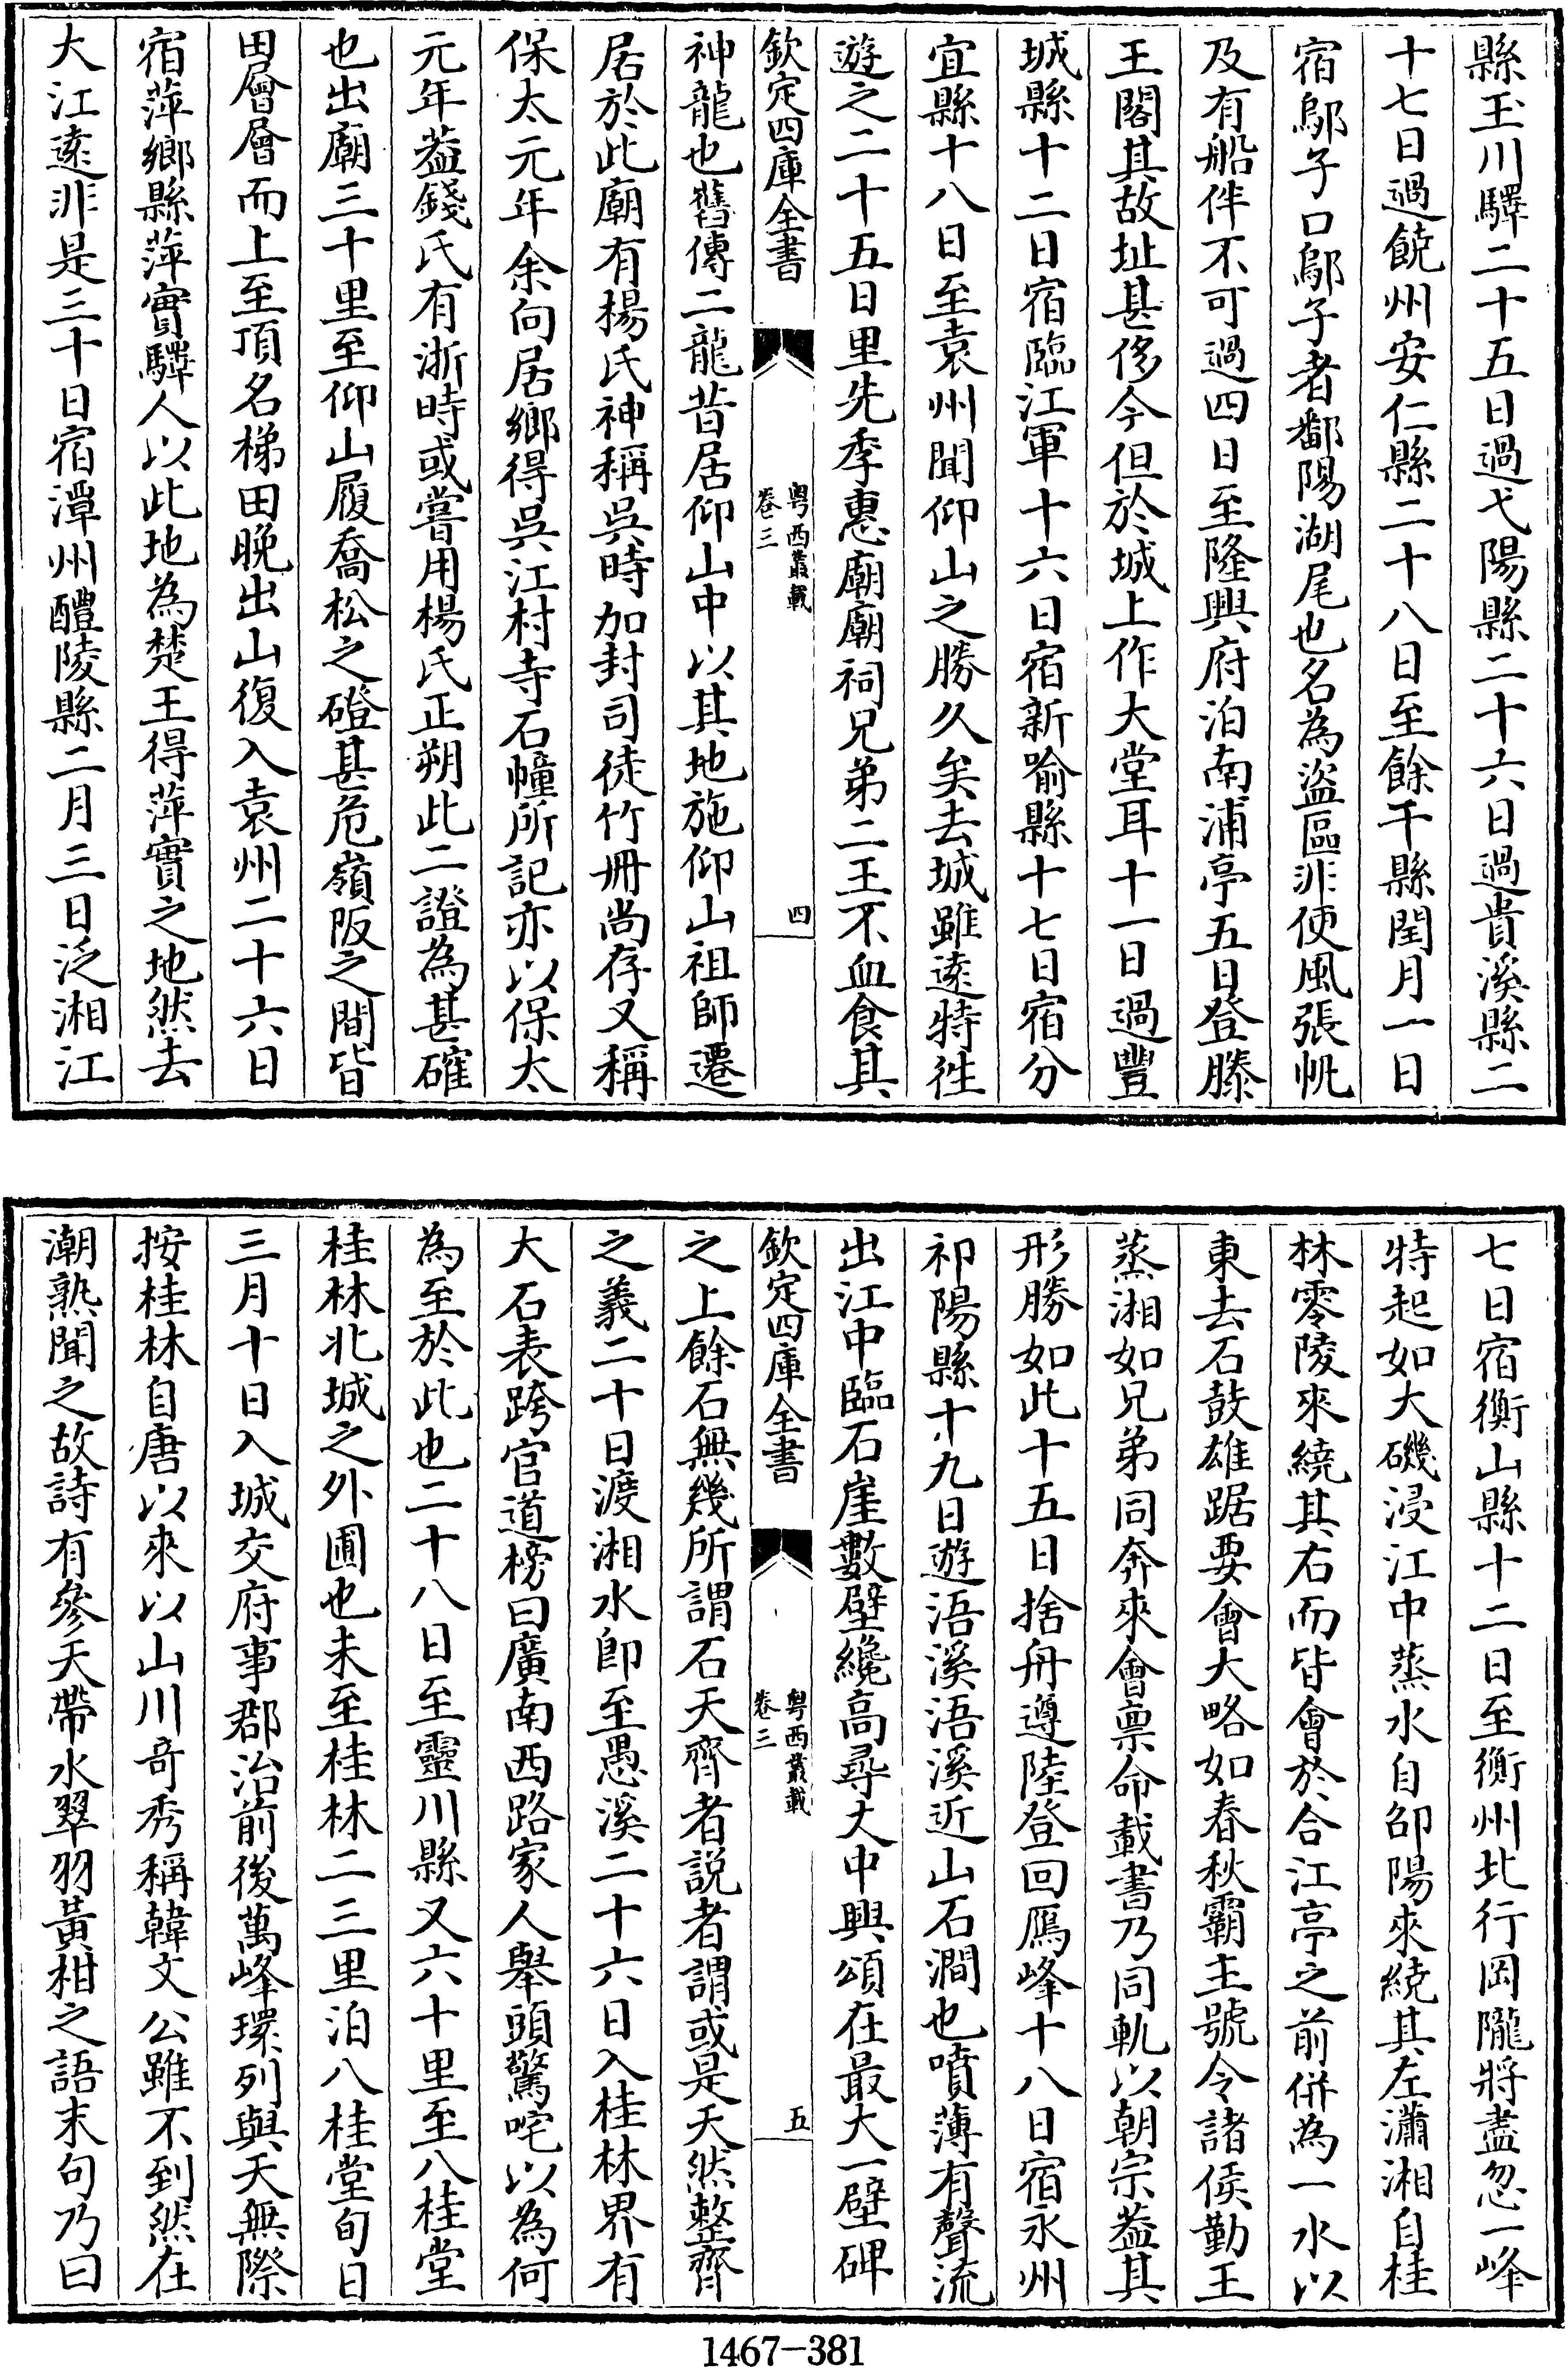 縣玉川驛二十五日過弋陽縣二十六日過貴溪縣二
十七日過饒州安仁縣二十八日至餘干縣閏月一日
宿鄔子口鄔子者鄱陽湖尾也名為盜區非便風張帆
及有船伴不可過四日至隆興府泊南浦亭五日登滕
王閣其故址甚侈今但於城上作大堂耳十一日過豐
城縣十二日宿臨江軍十六日宿新喻縣十七日宿分
宜縣十八日至袁州聞仰山之勝久矣去城雖逺特徃
遊之二十五日里先季惠廟廟祠兄弟二王不血食其
欽定四庫全書
粤西叢載
卷三
四
神龍也舊傳二龍昔居仰山中以其地施仰山祖師遷
居於此廟有楊氏神稱吳時加封司徒竹冊尚存又稱
保太元年余向居鄉得吳江村寺石幢所記亦以保太
元年葢錢氏有浙時或嘗用楊氏正朔此二證為甚確
也出廟三十里至仰山履喬松之磴甚危嶺阪之間皆
田層層而上至頂名梯田晚出山復入袁州二十六日
宿萍鄉縣萍實驛人以此地為楚王得萍實之地然去
大江逺非是三十日宿潭州醴陵縣二月三日泛湘江
七日宿衡山縣十二日至衡州北行岡隴將盡忽一峰
特起如大磯浸江中蒸水自邵陽來繞其左瀟湘自桂
林零陵來繞其右而皆會於合江亭之前併為一水以
東去石鼓雄踞要會大略如春秋霸主號令諸侯勤王
蒸湘如兄弟同奔來會稟命載書乃同軌以朝宗葢其
形勝如此十五日捨舟遵陸登回鴈峰十八日宿永州
祁陽縣十九日遊浯溪浯溪近山石澗也噴薄有聲流
出江中臨石崖數壁纔高尋丈中興頌在最大一壁碑
欽定四庫全書
粤西叢載
卷三
五
之上餘石無幾所謂石天齊者説者謂或是天然整齊
之義二十日渡湘水即至愚溪二十六日入桂林界有
大石表跨官道榜曰廣南西路家人舉頭驚咤以為何
為至於此也二十八日至靈川縣又六十里至八桂堂
桂林北城之外圃也未至桂林二三里泊八桂堂旬日
三月十日入城交府事郡治前後萬峰環列與天無際
按桂林自唐以來以山川奇秀稱韓文公雖不到然在
潮熟聞之故詩有參天帶水翠羽黃柑之語末句乃曰
1467-381